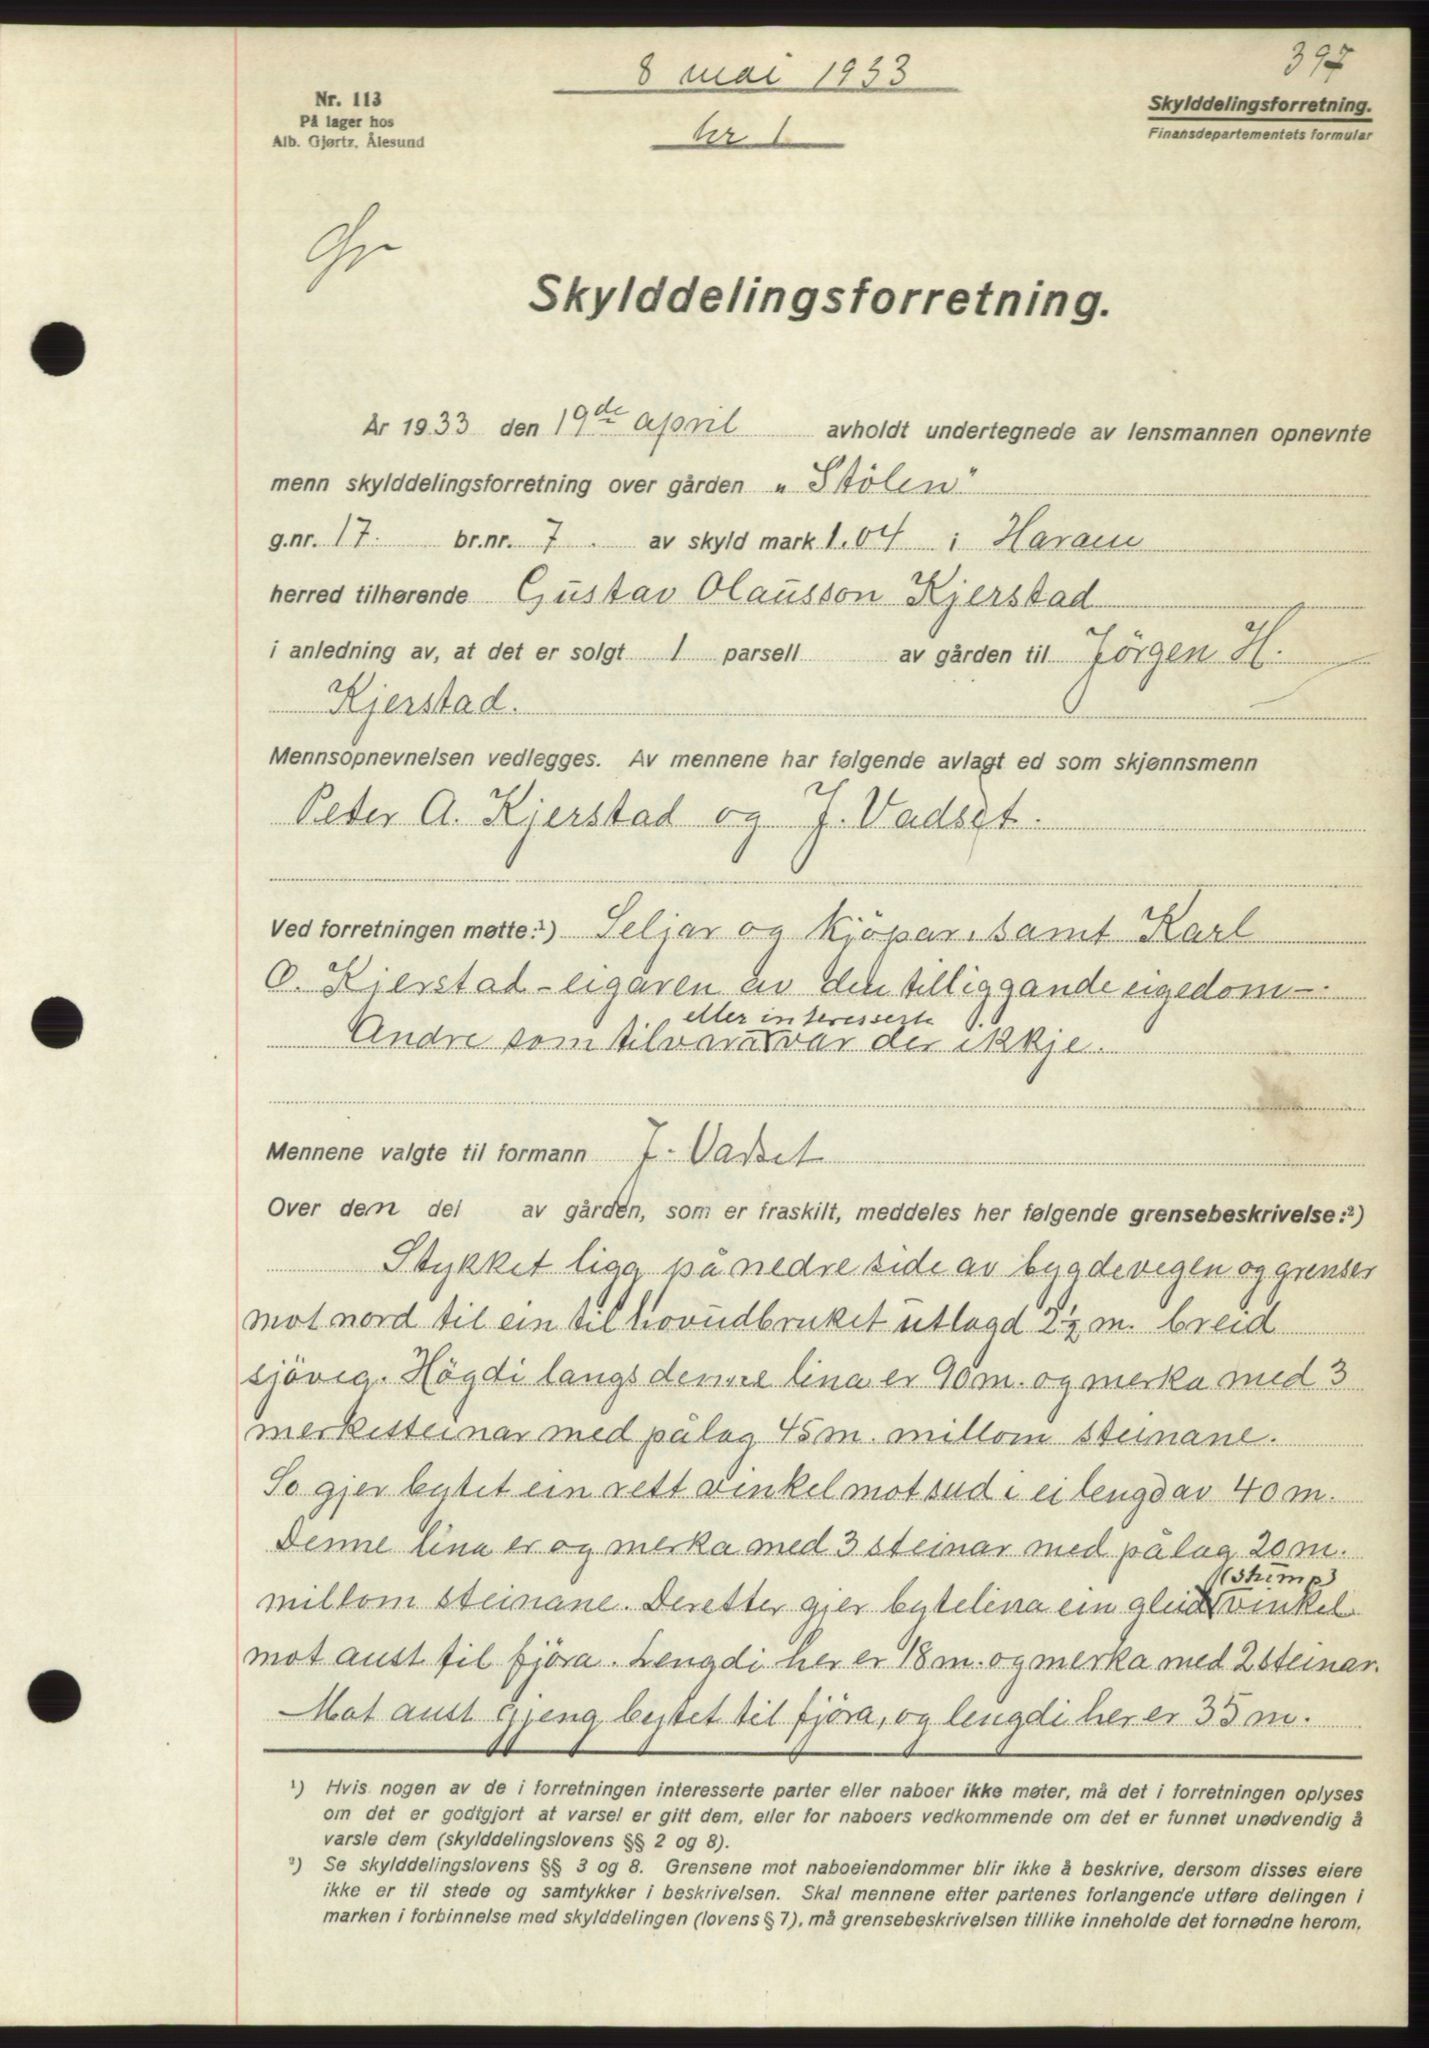 8 mai 1933
397
Nr. 113
På lager hos
Alb. Gjørtz, Ålesund
nr 1
Skylddelingsforretning.
Finansdepartementets formular
Skylddelingsforretning.
År 1933 den 19de april avholdt undertegnede av lensmannen opnevnte
menn skylddelingsforretning over gården „Stölen"
g.nr. 17. br.nr. 7. av skyld mark 1.04 i Haram
herred tilhørende Gustav Olausson Kjerstad
i anledning av, at det er solgt 1 parsell av gården til Jörgen H.
Kjerstad.
Mennsopnevnelsen vedlegges. Av mennene har følgende avlagt ed som skjønnsmenn
Peter A. Kjerstad og J. Vadset.
Ved forretningen møtte:¹) Seljar og kjöpar, samt Karl
O. Kjerstad - eigaren av den tilliggande eigedom -.
eller interesserte
Andre som tilvara var der ikkje.
Mennene valgte til formann J. Vadset
Over den del av gården, som er fraskilt, meddeles her følgende grensebeskrivelse:²)
Stykket ligg på nedre side av bygdevegen og grenser
mot nord til ein til hovudbruket utlagd 2½ m. breid
sjöveg. Högdi langs denne lina er 90 m. og merka med 3
merkesteinar med pålag 45 m. millom steinane.
So gjer bytet ein rett vinkel mot sud i ei lengd av 40 m.
Denne lina er og merka med 3 steinar med pålag 20 m.
(stump)
millom steinane. Deretter gjer bytelina ein gleid vinkel
mot aust til fjöra. Lengdi her er 18 m. og merka med 2 steinar.
Mot aust gjeng bytet til fjöra, og lengdi her er 35 m.
¹) Hvis nogen av de i forretningen interesserte parter eller naboer ikke møter, må det i forretningen oplyses
om det er godtgjort at varsel er gitt dem, eller for naboers vedkommende om det er funnet unødvendig å
varsle dem (skylddelingslovens §§ 2 og 8).
²) Se skylddelingslovens §§ 3 og 8. Grensene mot naboeiendommer blir ikke å beskrive, dersom disses eiere
ikke er til stede og samtykker i beskrivelsen. Skal mennene efter partenes forlangende utføre delingen i
marken i forbinnelse med skylddelingen (lovens § 7), må grensebeskrivelsen tillike inneholde det fornødne herom.